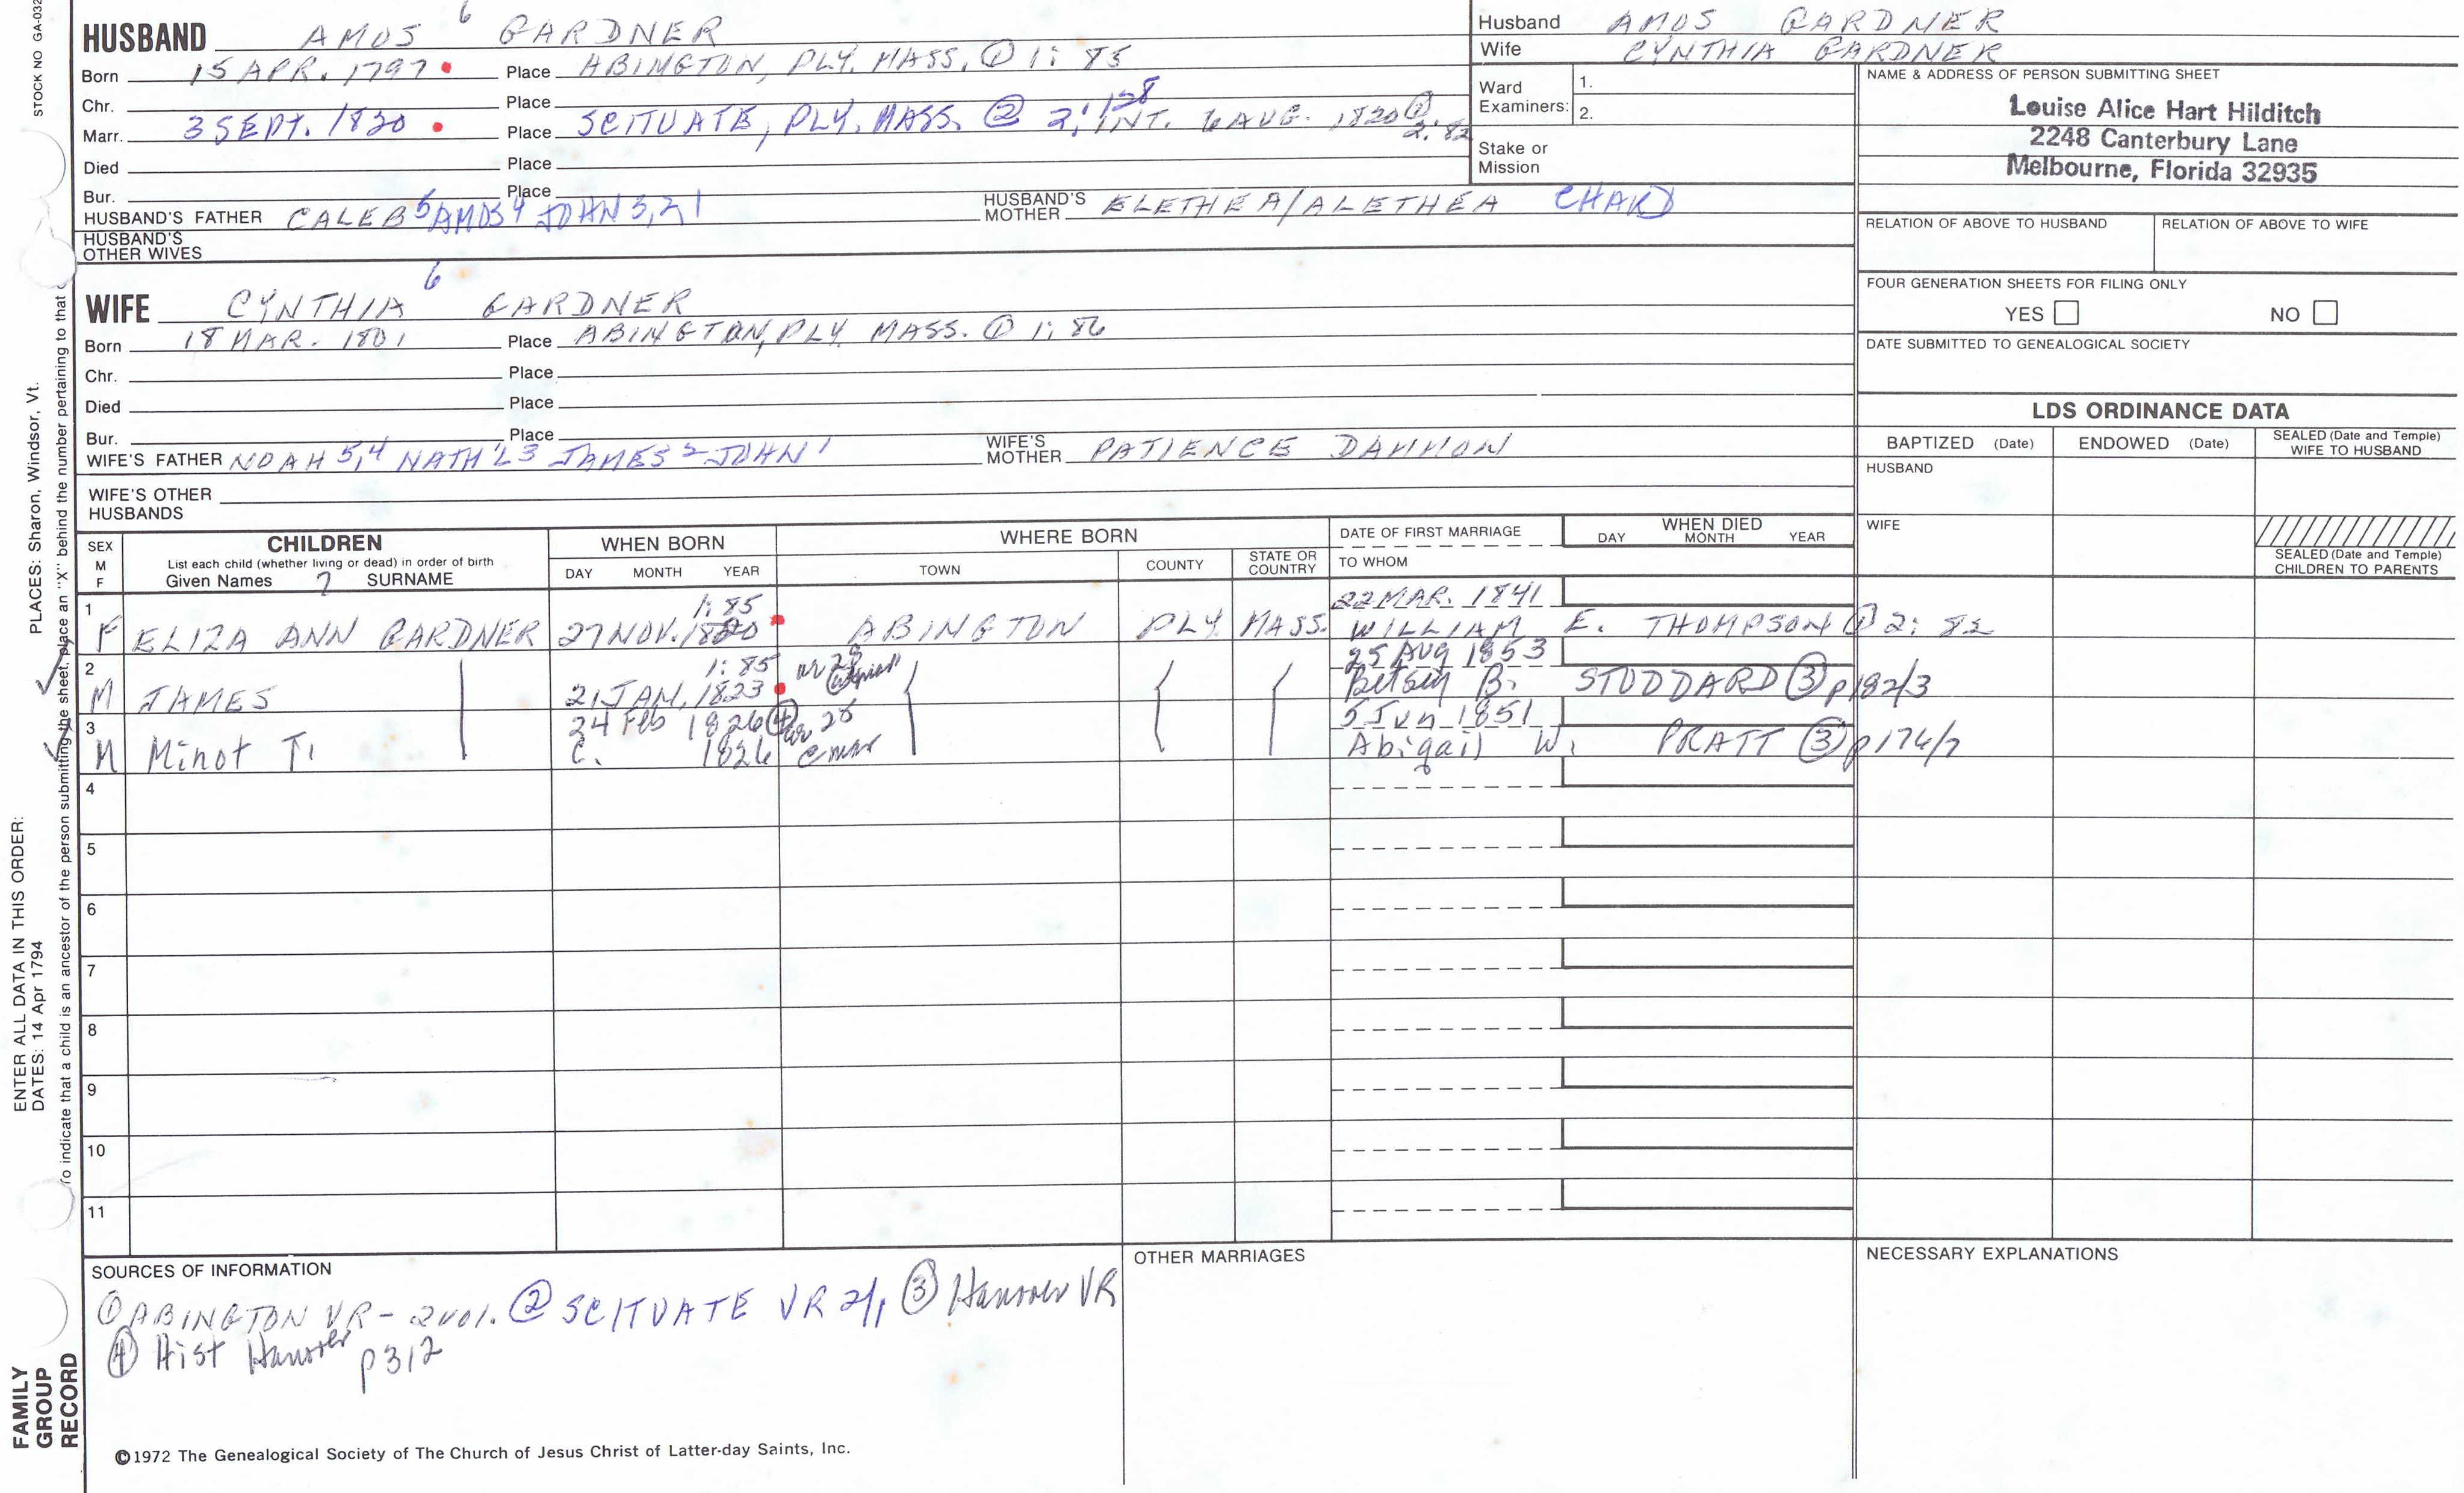 STOCK NO GA-032
HUSBAND AMOS 6 GARDNER
Born 15 APR. 1797 Place ABINGTON, PLY. MASS. ① 1: 85
Chr. Place
Marr. 3 SEPT. 1820 Place SCITUATE, PLY. MASS. ② 2: 128 INT. 6 AUG. 1820 ① 2: 82
Died Place
Bur. Place
HUSBAND'S FATHER CALEB 5 AMOS 4 JOHN 3,2,1 HUSBAND'S MOTHER ELETHEA/ALETHEA CHARD
HUSBAND'S OTHER WIVES
WIFE CYNTHIA 6 GARDNER
Born 18 MAR. 1801 Place ABINGTON, PLY. MASS. ① 1: 86
Chr. Place
Died Place
Bur. Place
WIFE'S FATHER NOAH 5,4 NATH'L 3 JAMES 2 JOHN 1 WIFE'S MOTHER PATIENCE DAMMON
WIFE'S OTHER HUSBANDS
Husband AMOS GARDNER
Wife CYNTHIA GARDNER
Ward Examiners: 1.
2.
Stake or Mission
NAME & ADDRESS OF PERSON SUBMITTING SHEET
Louise Alice Hart Hilditch
2248 Canterbury Lane
Melbourne, Florida 32935
RELATION OF ABOVE TO HUSBAND RELATION OF ABOVE TO WIFE
FOUR GENERATION SHEETS FOR FILING ONLY
YES NO
DATE SUBMITTED TO GENEALOGICAL SOCIETY
LDS ORDINANCE DATA
BAPTIZED (Date) ENDOWED (Date) SEALED (Date and Temple) WIFE TO HUSBAND
HUSBAND
WIFE
SEALED (Date and Temple) CHILDREN TO PARENTS
SEX M F
CHILDREN
List each child (whether living or dead) in order of birth
Given Names 7 SURNAME
WHEN BORN
DAY MONTH YEAR
WHERE BORN
TOWN COUNTY STATE OR COUNTRY
DATE OF FIRST MARRIAGE
TO WHOM
WHEN DIED
DAY MONTH YEAR
1 1: 85 22 MAR. 1841
F ELIZA ANN GARDNER 27 NOV. 1820 ABINGTON PLY. MASS. WILLIAM E. THOMPSON ① 2: 82
2 1: 85 or 28 25 AUG 1853
M JAMES 21 JAN. 1823 Betsey B. STODDARD ③ p182/3
3 24 Feb 1826 ④ or 28 5 Jun 1851
M Minot T. C. 1826 Abigail W. PRATT ③ p176/7
4
5
6
7
8
9
10
11
SOURCES OF INFORMATION
① ABINGTON VR - 2 vol. ② SCITUATE VR 2/1 ③ Hanover VR
④ Hist Hanover p312
OTHER MARRIAGES
NECESSARY EXPLANATIONS
©1972 The Genealogical Society of The Church of Jesus Christ of Latter-day Saints, Inc.
FAMILY GROUP RECORD
ENTER ALL DATA IN THIS ORDER:
DATES: 14 Apr 1794
PLACES: Sharon, Windsor, Vt.
To indicate that a child is an ancestor of the person submitting the sheet, place an "X" behind the number pertaining to that